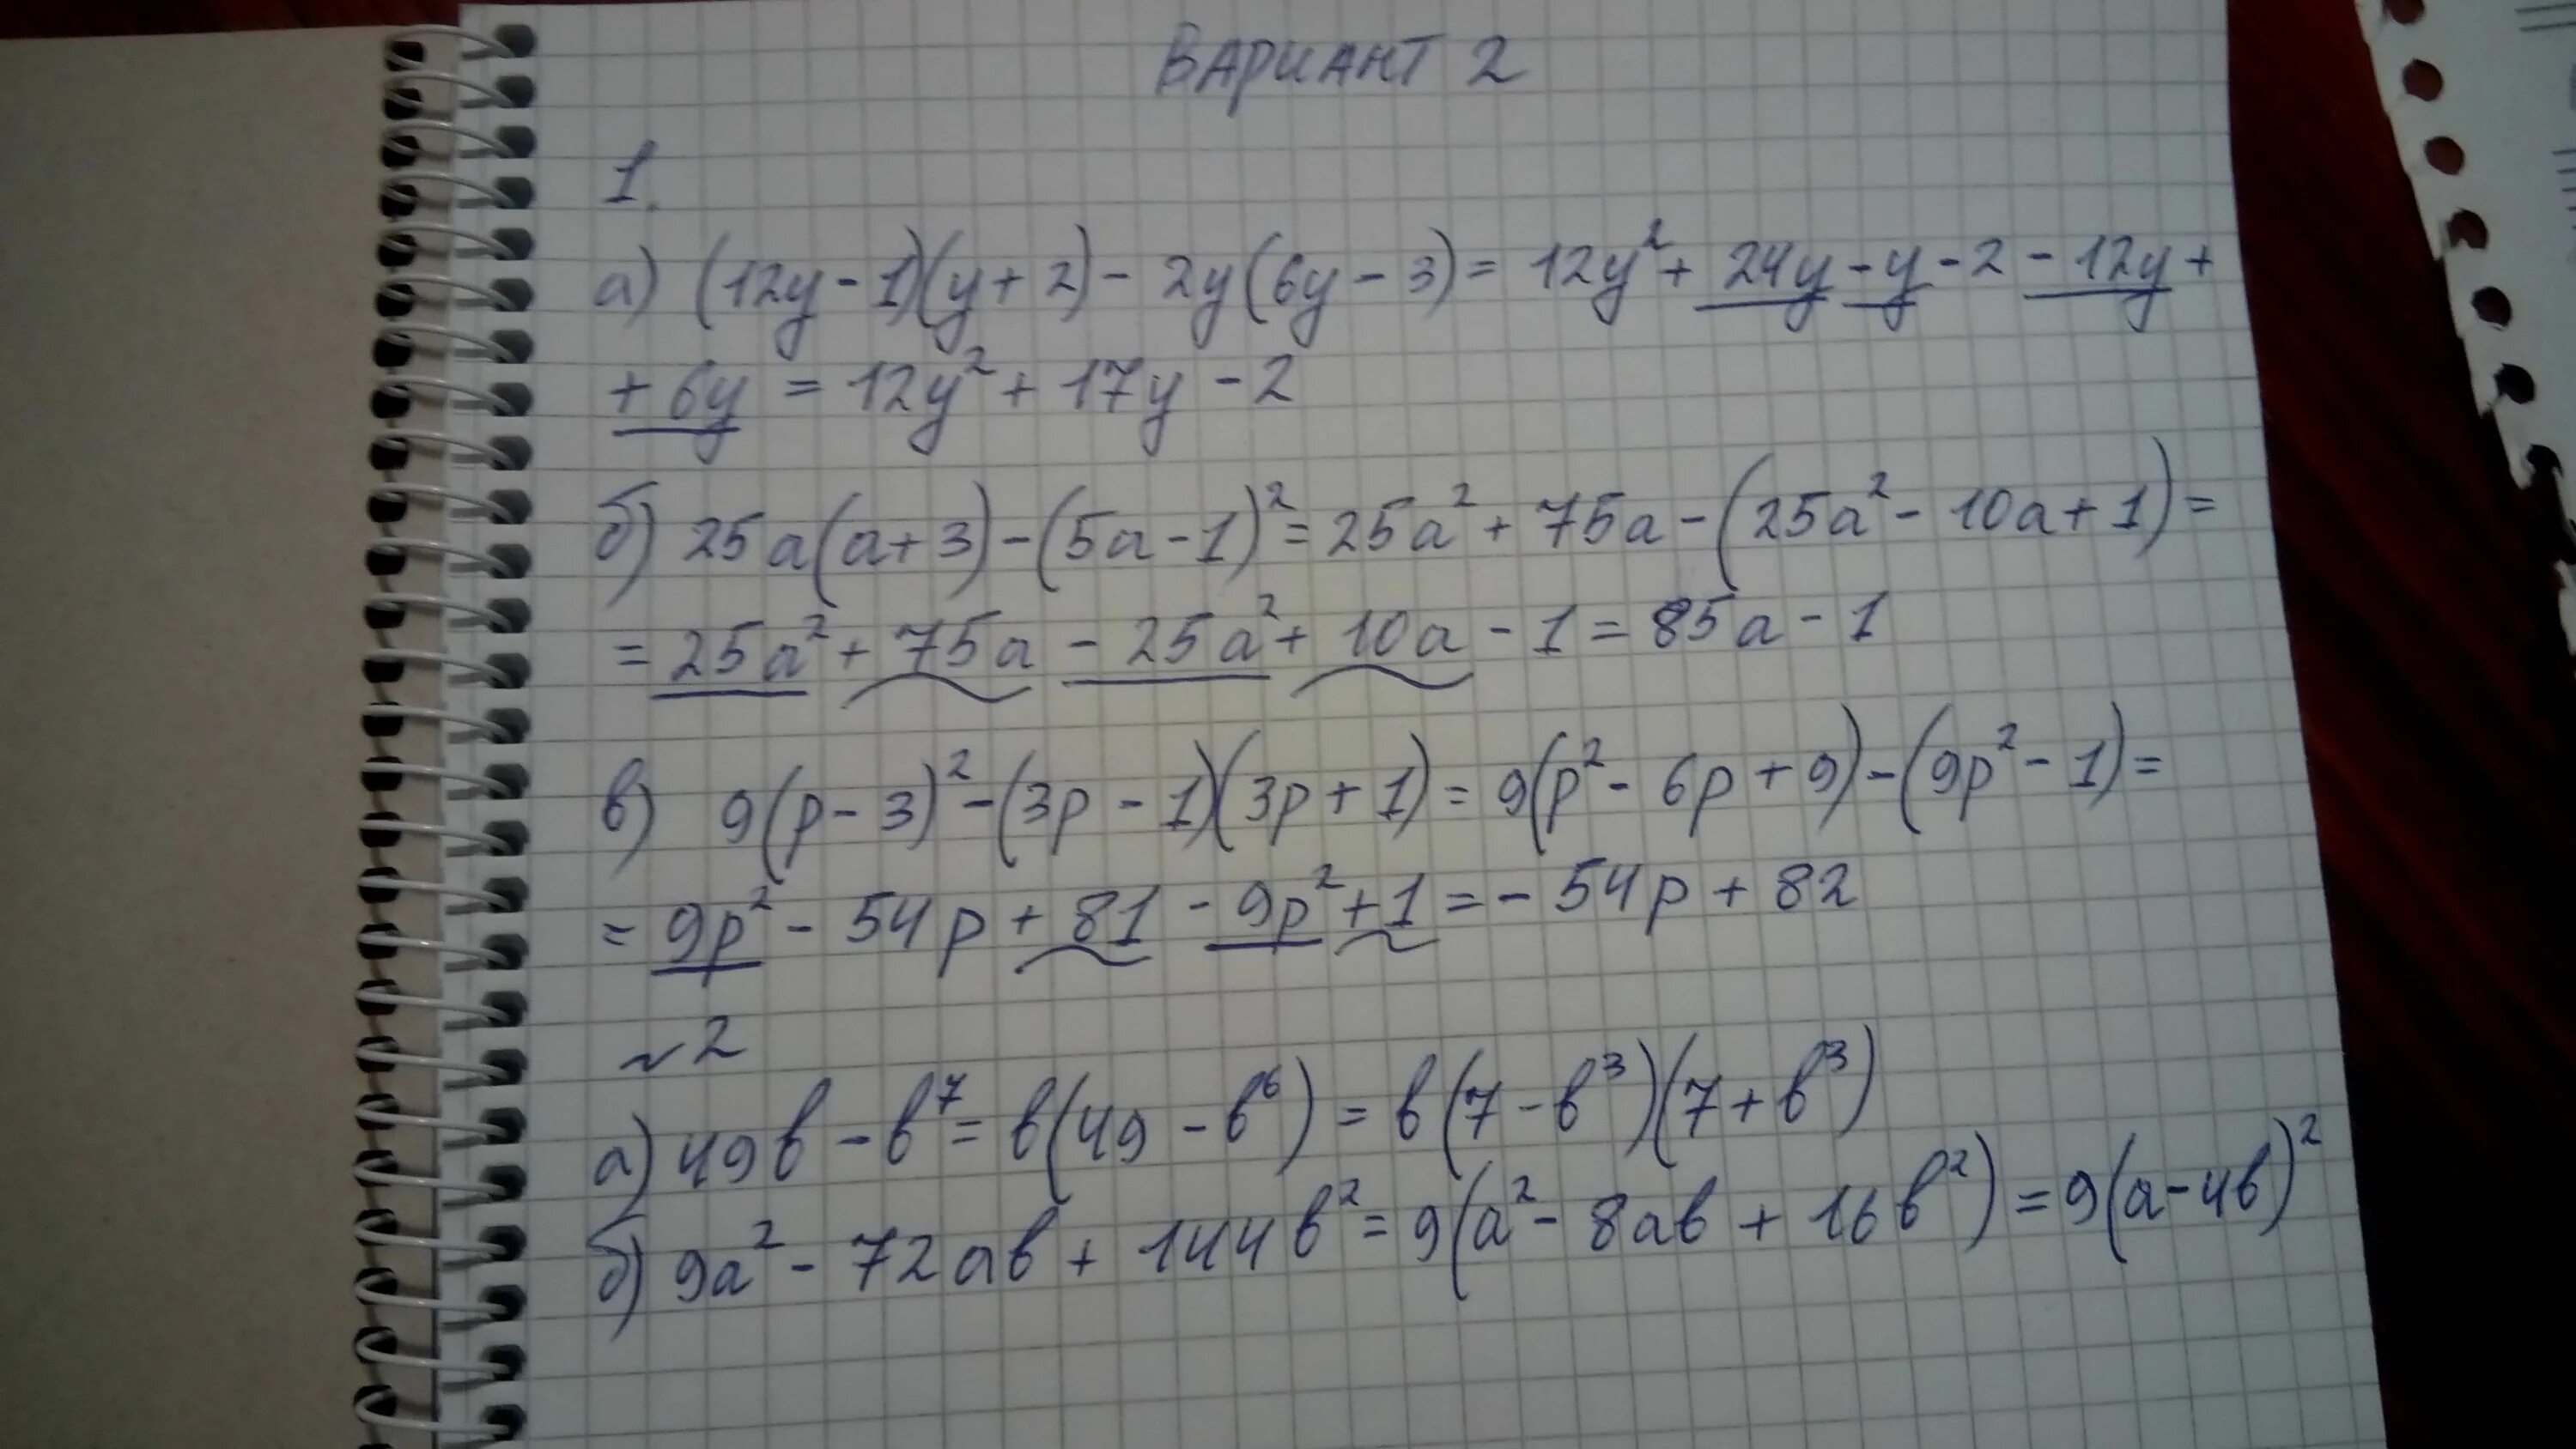 ВАРИАНТ 2
1.
а) (12y - 1)(y + 2) - 2y(6y - 3) = 12y² + 24y - y - 2 - 12y +
+ 6y = 12y² + 17y - 2
б) 25a(a + 3) - (5a - 1)² = 25a² + 75a - (25a² - 10a + 1) =
= 25a² + 75a - 25a² + 10a - 1 = 85a - 1
в) 9(p - 3)² - (3p - 1)(3p + 1) = 9(p² - 6p + 9) - (9p² - 1) =
= 9p² - 54p + 81 - 9p² + 1 = - 54p + 82
~2
а) 49в - в⁷ = в(49 - в⁶) = в(7 - в³)(7 + в³)
б) 9a² - 72aв + 144в² = 9(a² - 8aв + 16в²) = 9(a - 4в)²